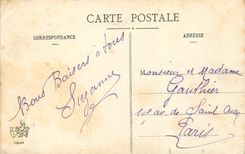 CARTE POSTALE
CORRESPONDANCE
ADRESSE
Bons Baisers à vous
Suzanne
Monsieur et Madame
Gauthier
av. de Saint Ouen
Paris